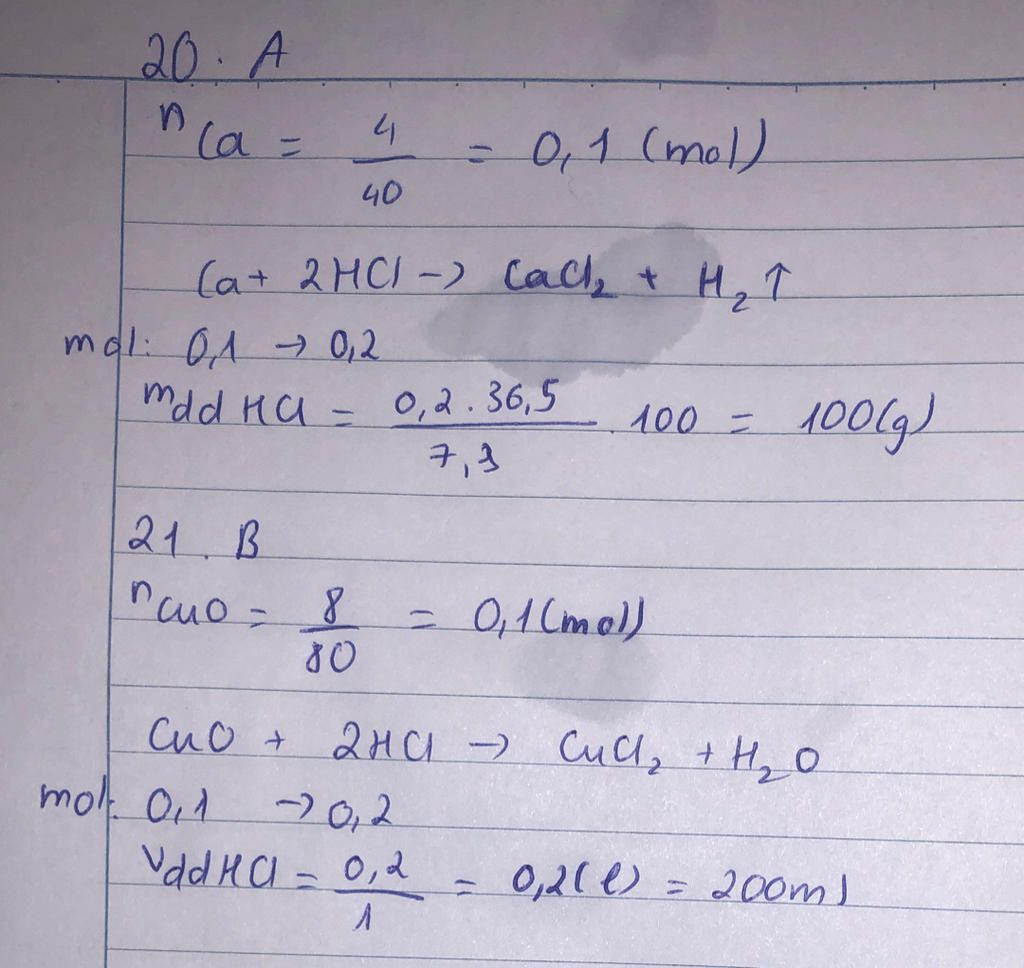 20. A
nCa = 4/40 = 0,1 (mol)
Ca + 2HCl -> CaCl₂ + H₂↑
mol: 0,1 -> 0,2
mdd HCl = 0,2.36,5/7,3 . 100 = 100(g)
21. B
nCuO = 8/80 = 0,1(mol)
CuO + 2HCl -> CuCl₂ + H₂O
mol: 0,1 -> 0,2
VddHCl = 0,2/1 = 0,2(l) = 200ml